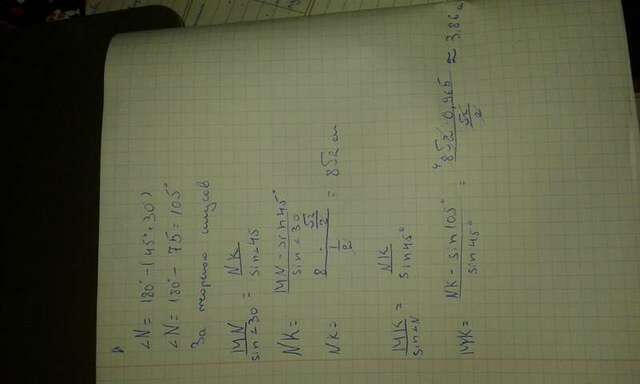 ∠N = 180° - (45° + 30°)
∠N = 180° - 75 = 105°
За теоремою синусов
MN / sin∠30 = NK / sin∠45
NK = MN · sin 45° / sin∠30
NK = (8 · √2/2) / (1/2) = 8√2 см
MK / sin∠N = NK / sin 45°
MK = NK · sin 105° / sin 45° = 8√2 · 0,965 / (√2/2) ≈ 3.86